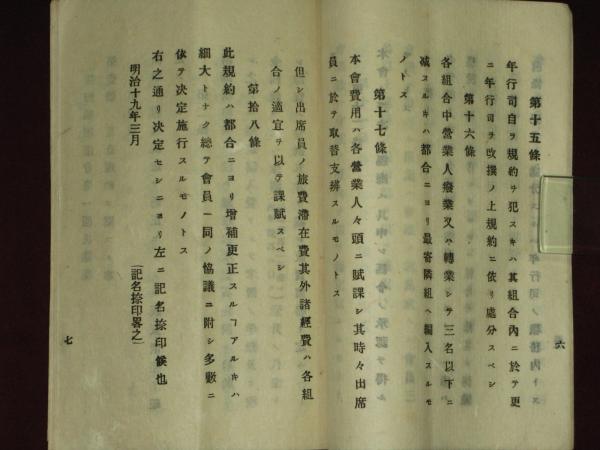 第十五條
年行司自ヲ規約ヲ犯スキハ其組合內ニ於テ更
ニ年行司ヲ改撰ノ上規約ニ依リ處分スベシ
第十六條
各組合中營業人癈業又ハ轉業シテ三名以下ニ
减スルキハ都合ニヨリ最寄隣組ヘ編入スルモ
ノトス
第十七條
本會費用ハ各營業人々頭ニ賦課シ其時々出席
員ニ於テ取替支拂スルモノトス
六
但シ出席員ノ旅費滯在費其外諸經費ハ各組
合ノ適宜ヲ以テ課賦スベシ
第拾八條
此規約ハ都合ニヨリ增補更正スルヿアルキハ
細大トナク總テ會員一同ノ協議ニ附シ多數ニ
依テ决定施行スルモノトス
右之通リ决定セシニヨリ左ニ記名捺印候也
明治十九年三月
(記名捺印畧之)
七